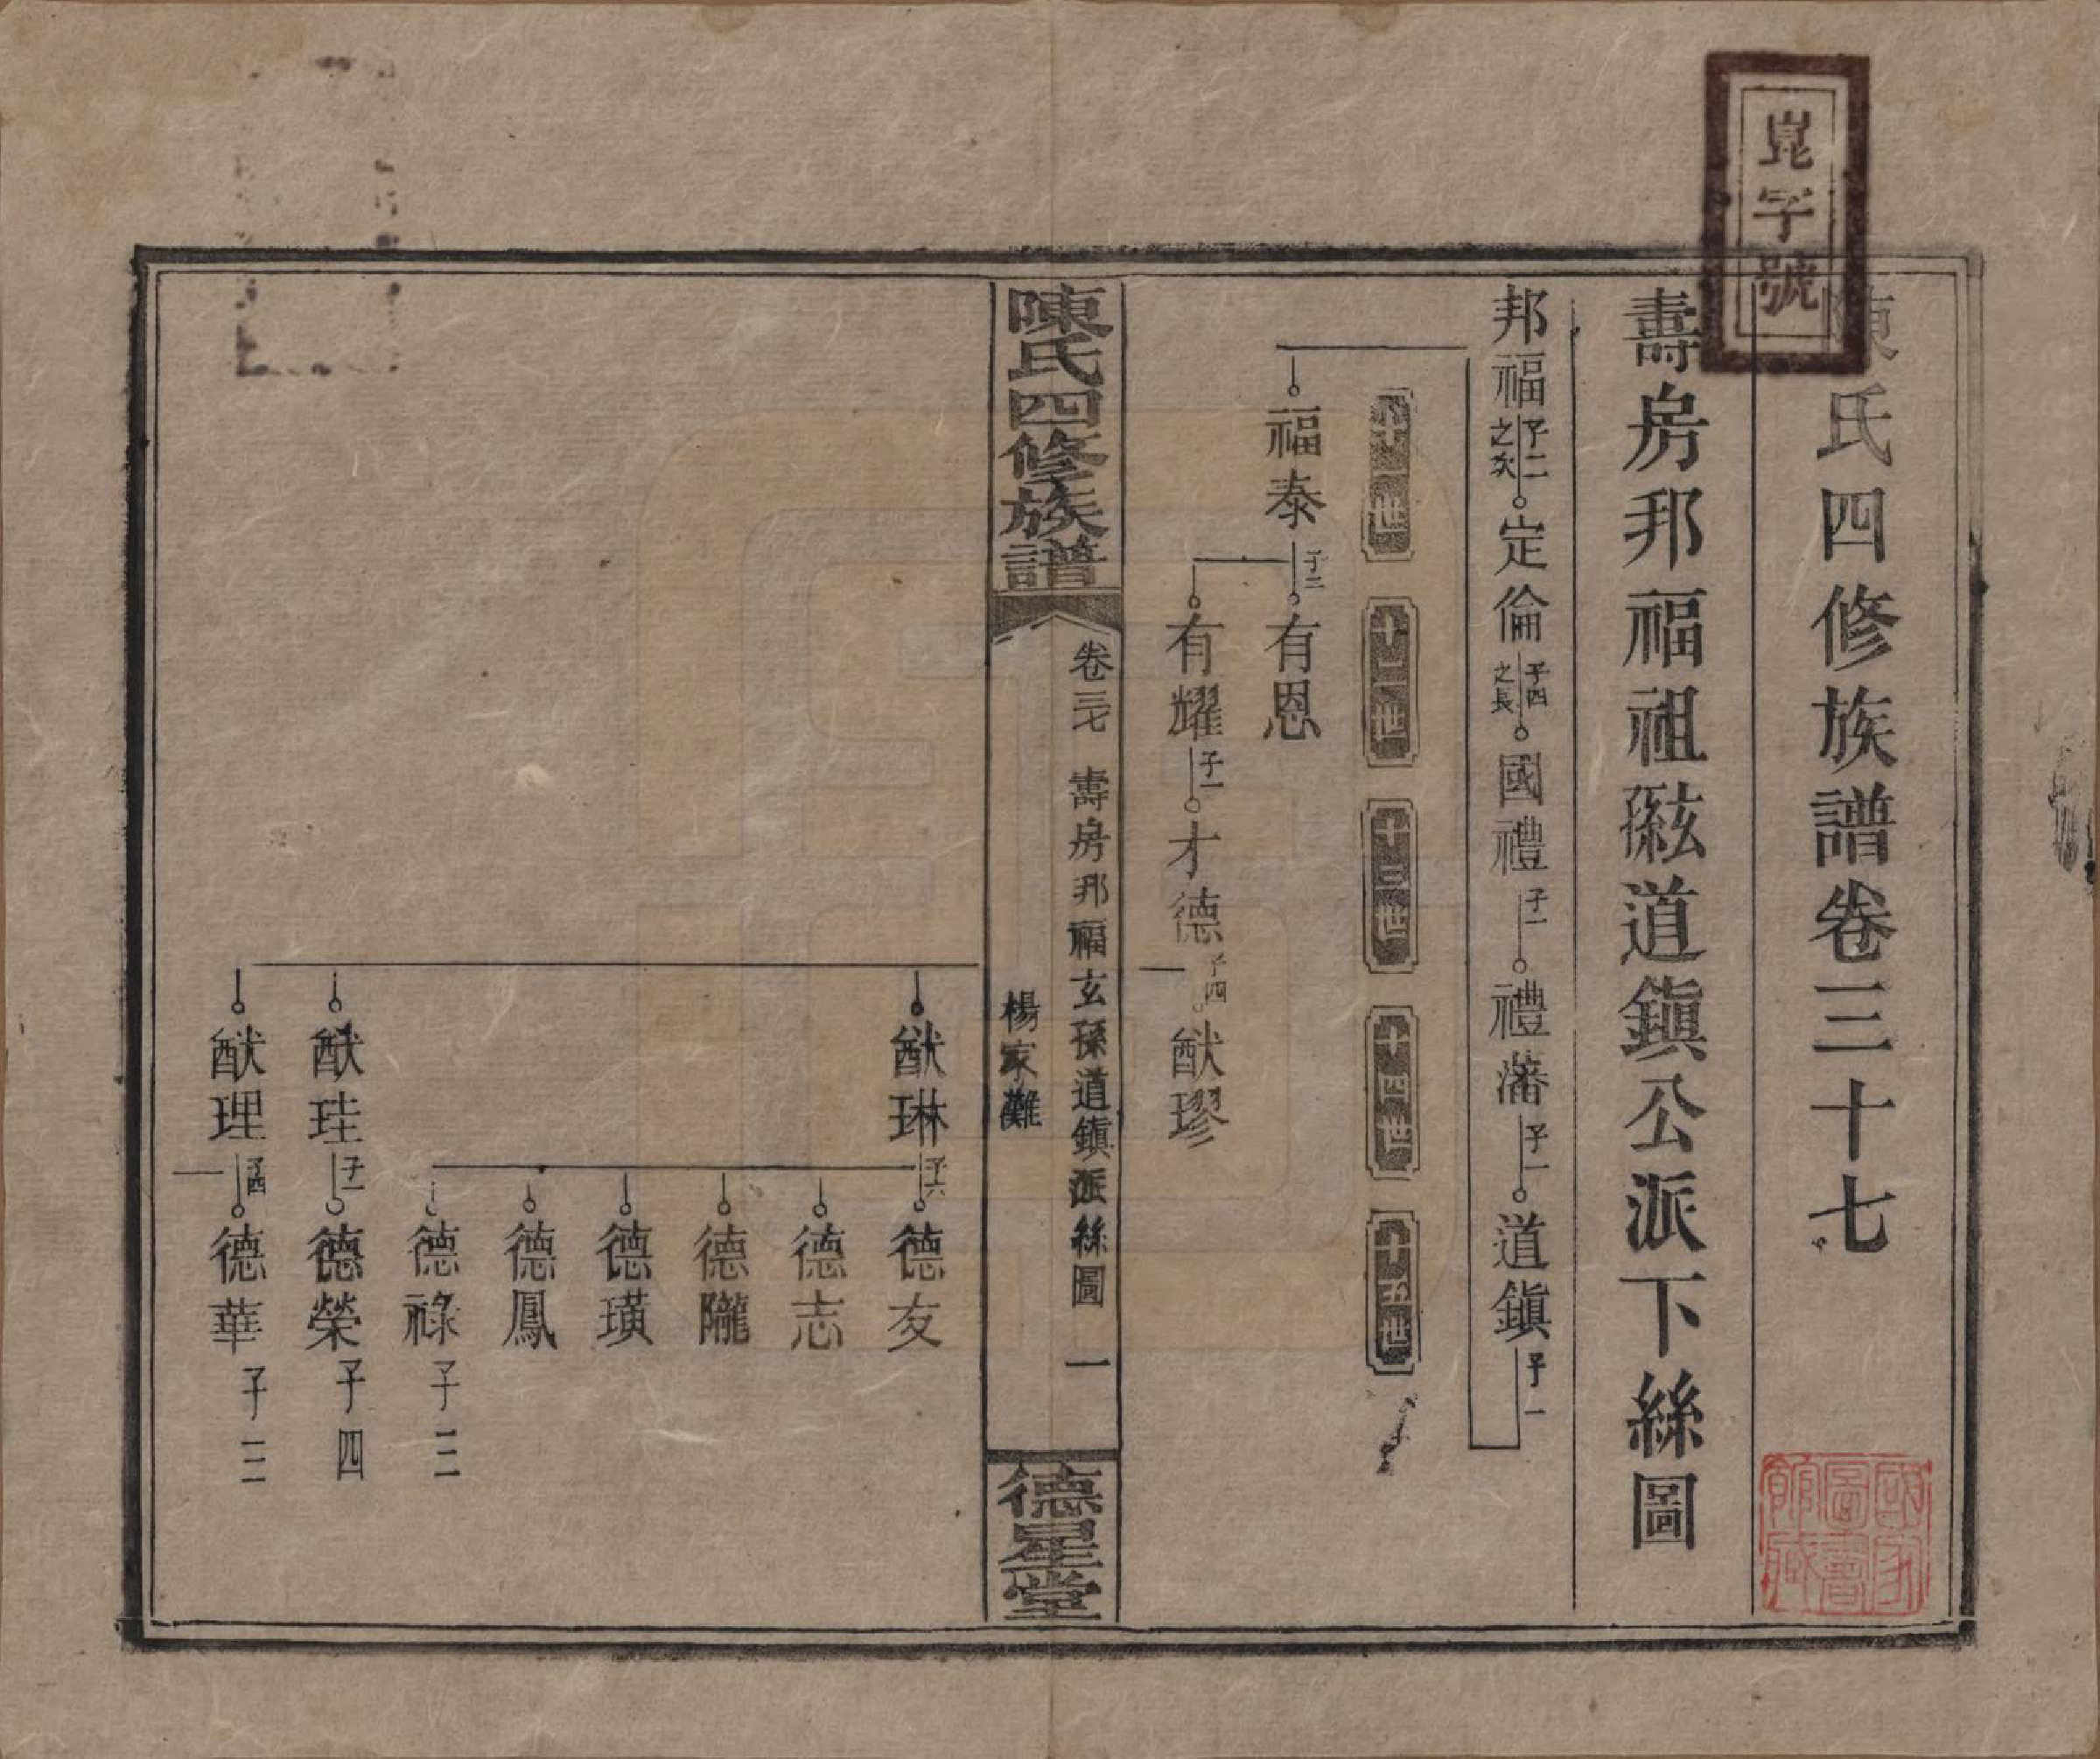 崑字號
陳氏四修族譜卷三十七
壽房邦福祖玄孫道鎮公派下絲圖
邦福 子二之次 定倫 子四之長 國禮 子一 禮藩 子一 道鎮 子一
十一世 十二世 十三世 十四世 十五世
福泰 子二 有恩
有耀 子一 才德 子四 猷璆
陳氏四修族譜
卷三七 壽房邦福玄孫道鎮派絲圖 一
楊家灘
德星堂
猷琳 子六 德友
德志
德隴
德璜
德鳳
德祿 子三
猷珪 子一 德榮 子四
猷理 子四 德華 子三
國家圖書館藏